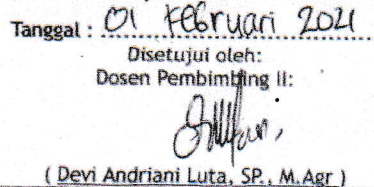 Tanggal : 01 Februari 2021
Disetujui oleh:
Dosen Pembimbing II:
( Devi Andriani Luta, SP., M.Agr )